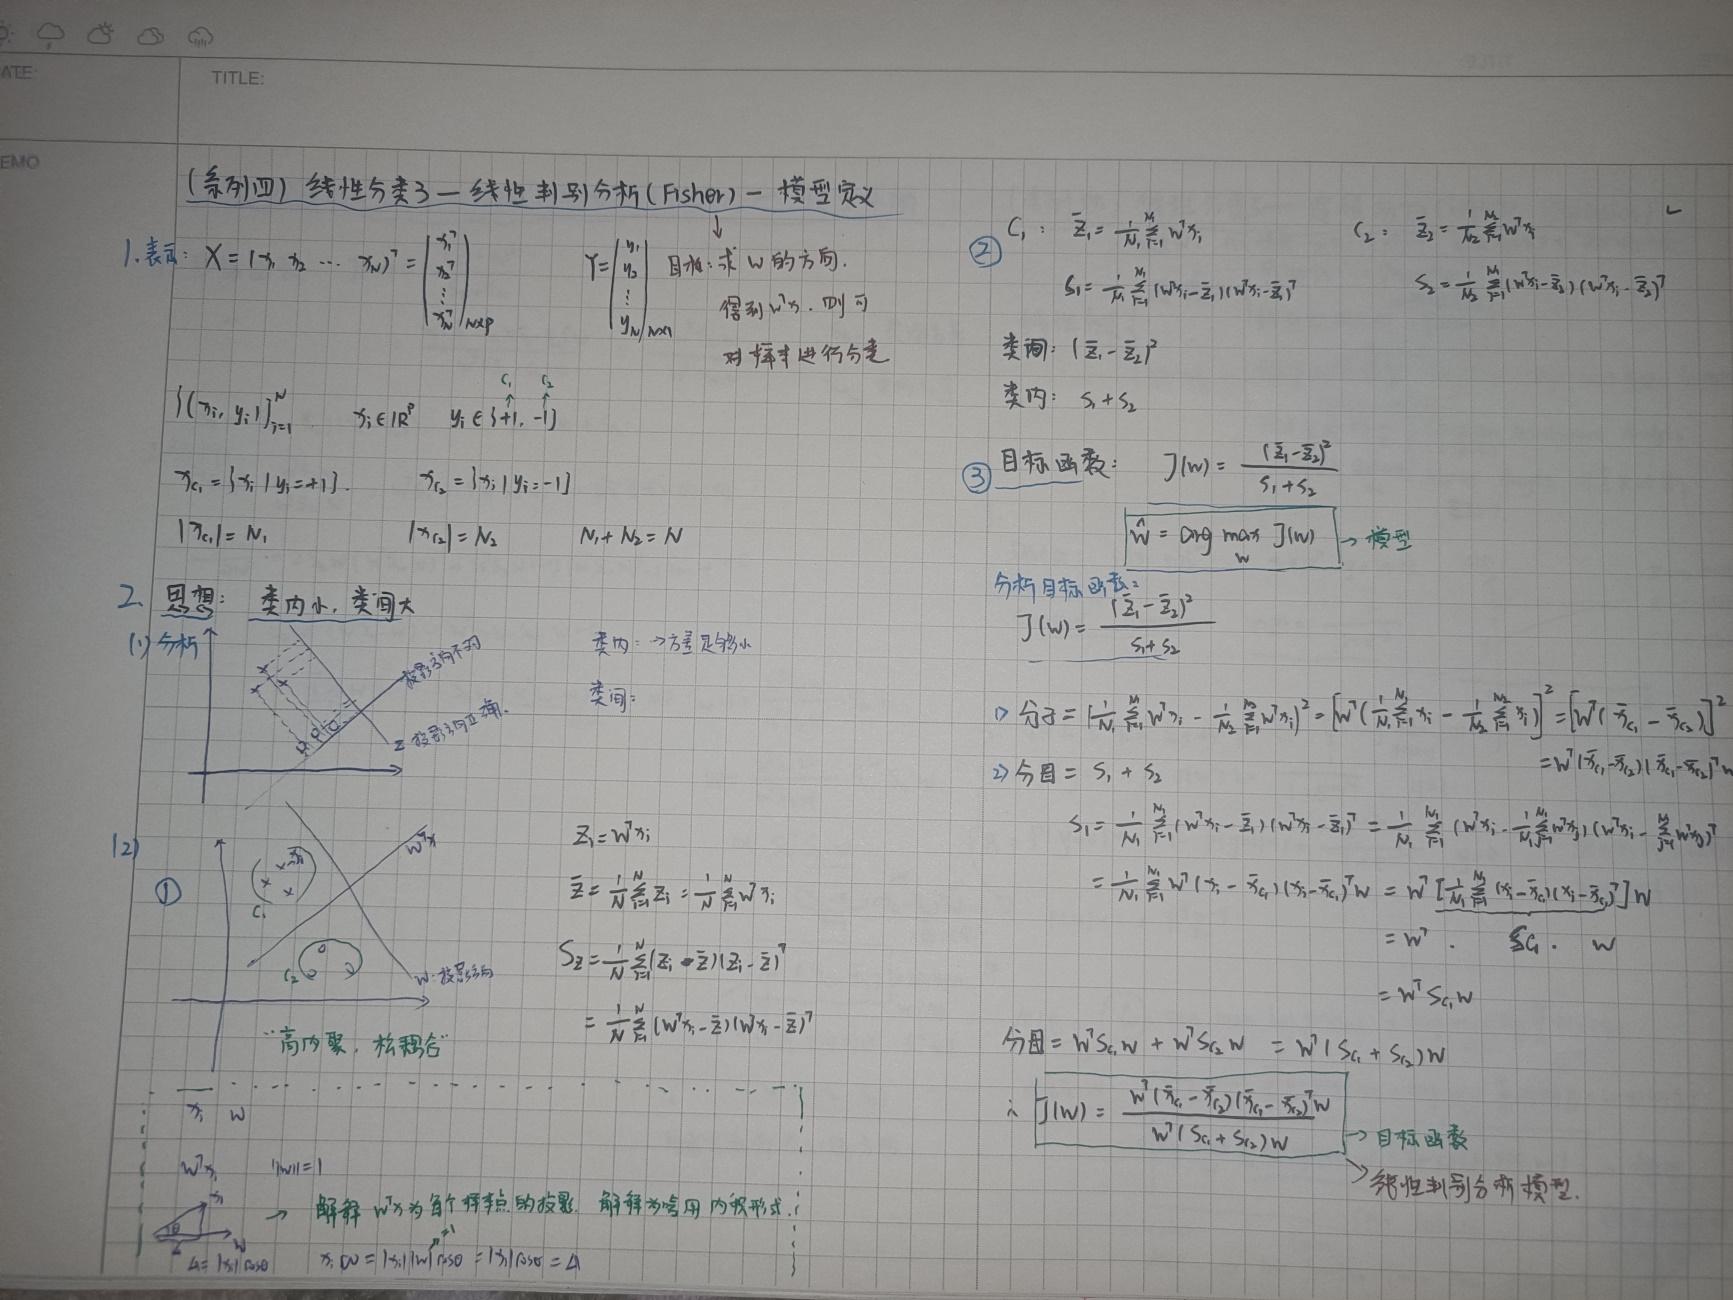 ATE:
TITLE:
EMO
(系列四) 线性分类3 — 线性判别分析(Fisher) — 模型定义
1.表示: X = (x₁ x₂ ⋯ x_N)ᵀ = (x₁ᵀ x₂ᵀ ⋮ x_Nᵀ)_{N×P} Y = (y₁ y₂ ⋮ y_N)_{N×1}
↓
目标: 求 W 的方向.
得到 wᵀx. 则可
对样本进行分类
c₁ c₂
↑ ↑
{(xᵢ, yᵢ)}ᵢ₌₁ᴺ xᵢ∈ℝᴾ yᵢ∈{+1, -1}
x_{c₁} = {xᵢ | yᵢ=+1}. x_{c₂} = {xᵢ | yᵢ=-1}
|x_{c₁}| = N₁ |x_{c₂}| = N₂ N₁ + N₂ = N
2. 思想: 类内小, 类间大
(1) 分析
投影方向不对
Z 投影方向正确.
类内: →方差足够小
类间:
(2)
①
C₁
C₂
wᵀx
W: 投影方向
"高内聚, 松耦合"
Zᵢ = wᵀxᵢ
Z̄ = 1/N Σᵢ₌₁ᴺ Zᵢ = 1/N Σᵢ₌₁ᴺ wᵀxᵢ
S_Z = 1/N Σᵢ₌₁ᴺ (Zᵢ - Z̄)(Zᵢ - Z̄)ᵀ
= 1/N Σᵢ₌₁ᴺ (wᵀxᵢ - Z̄)(wᵀxᵢ - Z̄)ᵀ
xᵢ w
wᵀxᵢ ||w||=1
xᵢ
θ
W
Δ = |xᵢ| cosθ
→ 解释 wᵀx 为每个样本点的投影. 解释为啥用内积形式.
=1
xᵢ·w = |xᵢ||w| cosθ = |xᵢ| cosθ = Δ
② C₁: Z̄₁ = 1/N₁ Σᵢ₌₁^{N₁} wᵀxᵢ C₂: Z̄₂ = 1/N₂ Σᵢ₌₁^{N₂} wᵀxᵢ
S₁ = 1/N₁ Σᵢ₌₁^{N₁} (wᵀxᵢ - Z̄₁)(wᵀxᵢ - Z̄₁)ᵀ S₂ = 1/N₂ Σᵢ₌₁^{N₂} (wᵀxᵢ - Z̄₂)(wᵀxᵢ - Z̄₂)ᵀ
类间: (Z̄₁ - Z̄₂)²
类内: S₁ + S₂
③ 目标函数: J(w) = (Z̄₁ - Z̄₂)² / (S₁ + S₂)
ŵ = arg max_w J(w) → 模型
分析目标函数:
J(w) = (Z̄₁ - Z̄₂)² / (S₁ + S₂)
1> 分子 = (1/N₁ Σᵢ₌₁^{N₁} wᵀxᵢ - 1/N₂ Σᵢ₌₁^{N₂} wᵀxᵢ)² = [wᵀ(1/N₁ Σᵢ₌₁^{N₁} xᵢ - 1/N₂ Σᵢ₌₁^{N₂} xᵢ)]² = [wᵀ(x̄_{c₁} - x̄_{c₂})]²
= wᵀ(x̄_{c₁} - x̄_{c₂})(x̄_{c₁} - x̄_{c₂})ᵀw
2> 分母 = S₁ + S₂
S₁ = 1/N₁ Σᵢ₌₁^{N₁} (wᵀxᵢ - Z̄₁)(wᵀxᵢ - Z̄₁)ᵀ = 1/N₁ Σᵢ₌₁^{N₁} (wᵀxᵢ - 1/N₁ Σⱼ₌₁^{N₁} wᵀxⱼ)(wᵀxᵢ - Σⱼ₌₁^{N₁} wᵀxⱼ)ᵀ
= 1/N₁ Σᵢ₌₁^{N₁} wᵀ(xᵢ - x̄_{c₁})(xᵢ - x̄_{c₁})ᵀw = wᵀ[1/N₁ Σᵢ₌₁^{N₁} (xᵢ - x̄_{c₁})(xᵢ - x̄_{c₁})ᵀ]w
= wᵀ · S_{c₁} · w
= wᵀS_{c₁}w
分母 = wᵀS_{c₁}w + wᵀS_{c₂}w = wᵀ(S_{c₁} + S_{c₂})w
∴ J(w) = wᵀ(x̄_{c₁} - x̄_{c₂})(x̄_{c₁} - x̄_{c₂})ᵀw / wᵀ(S_{c₁} + S_{c₂})w
→ 目标函数
↘ 线性判别分析模型.